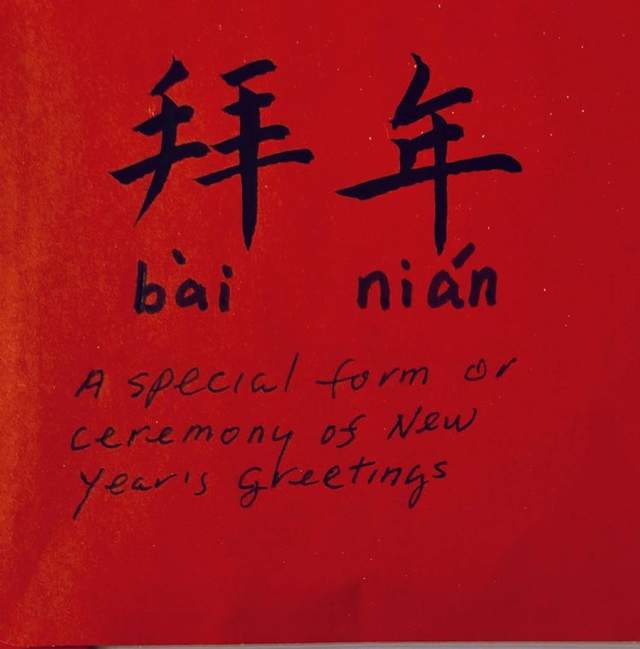 拜年
bài nián
A special form or
ceremony of New
Year's Greetings